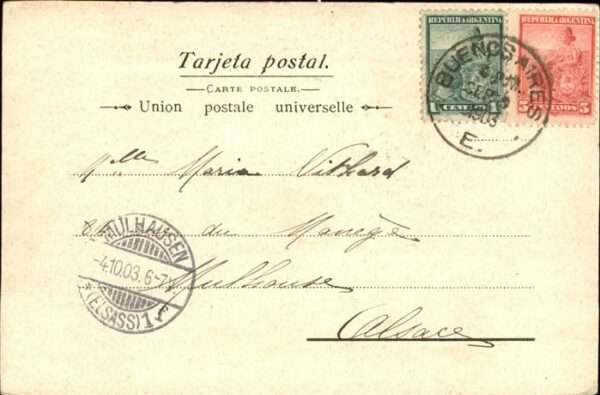 REPUBLICA ARGENTINA
REPUBLICA ARGENTINA
1 CENTAVO 1
5 CENTAVOS 5
BUENOS AIRES
1903
E.
Tarjeta postal.
CARTE POSTALE.
Union postale universelle
Mlle Maria
du Manège
Mulhouse
Alsace
MÜLHAUSEN
-4.10.03. 6-7
(ELSASS) 1